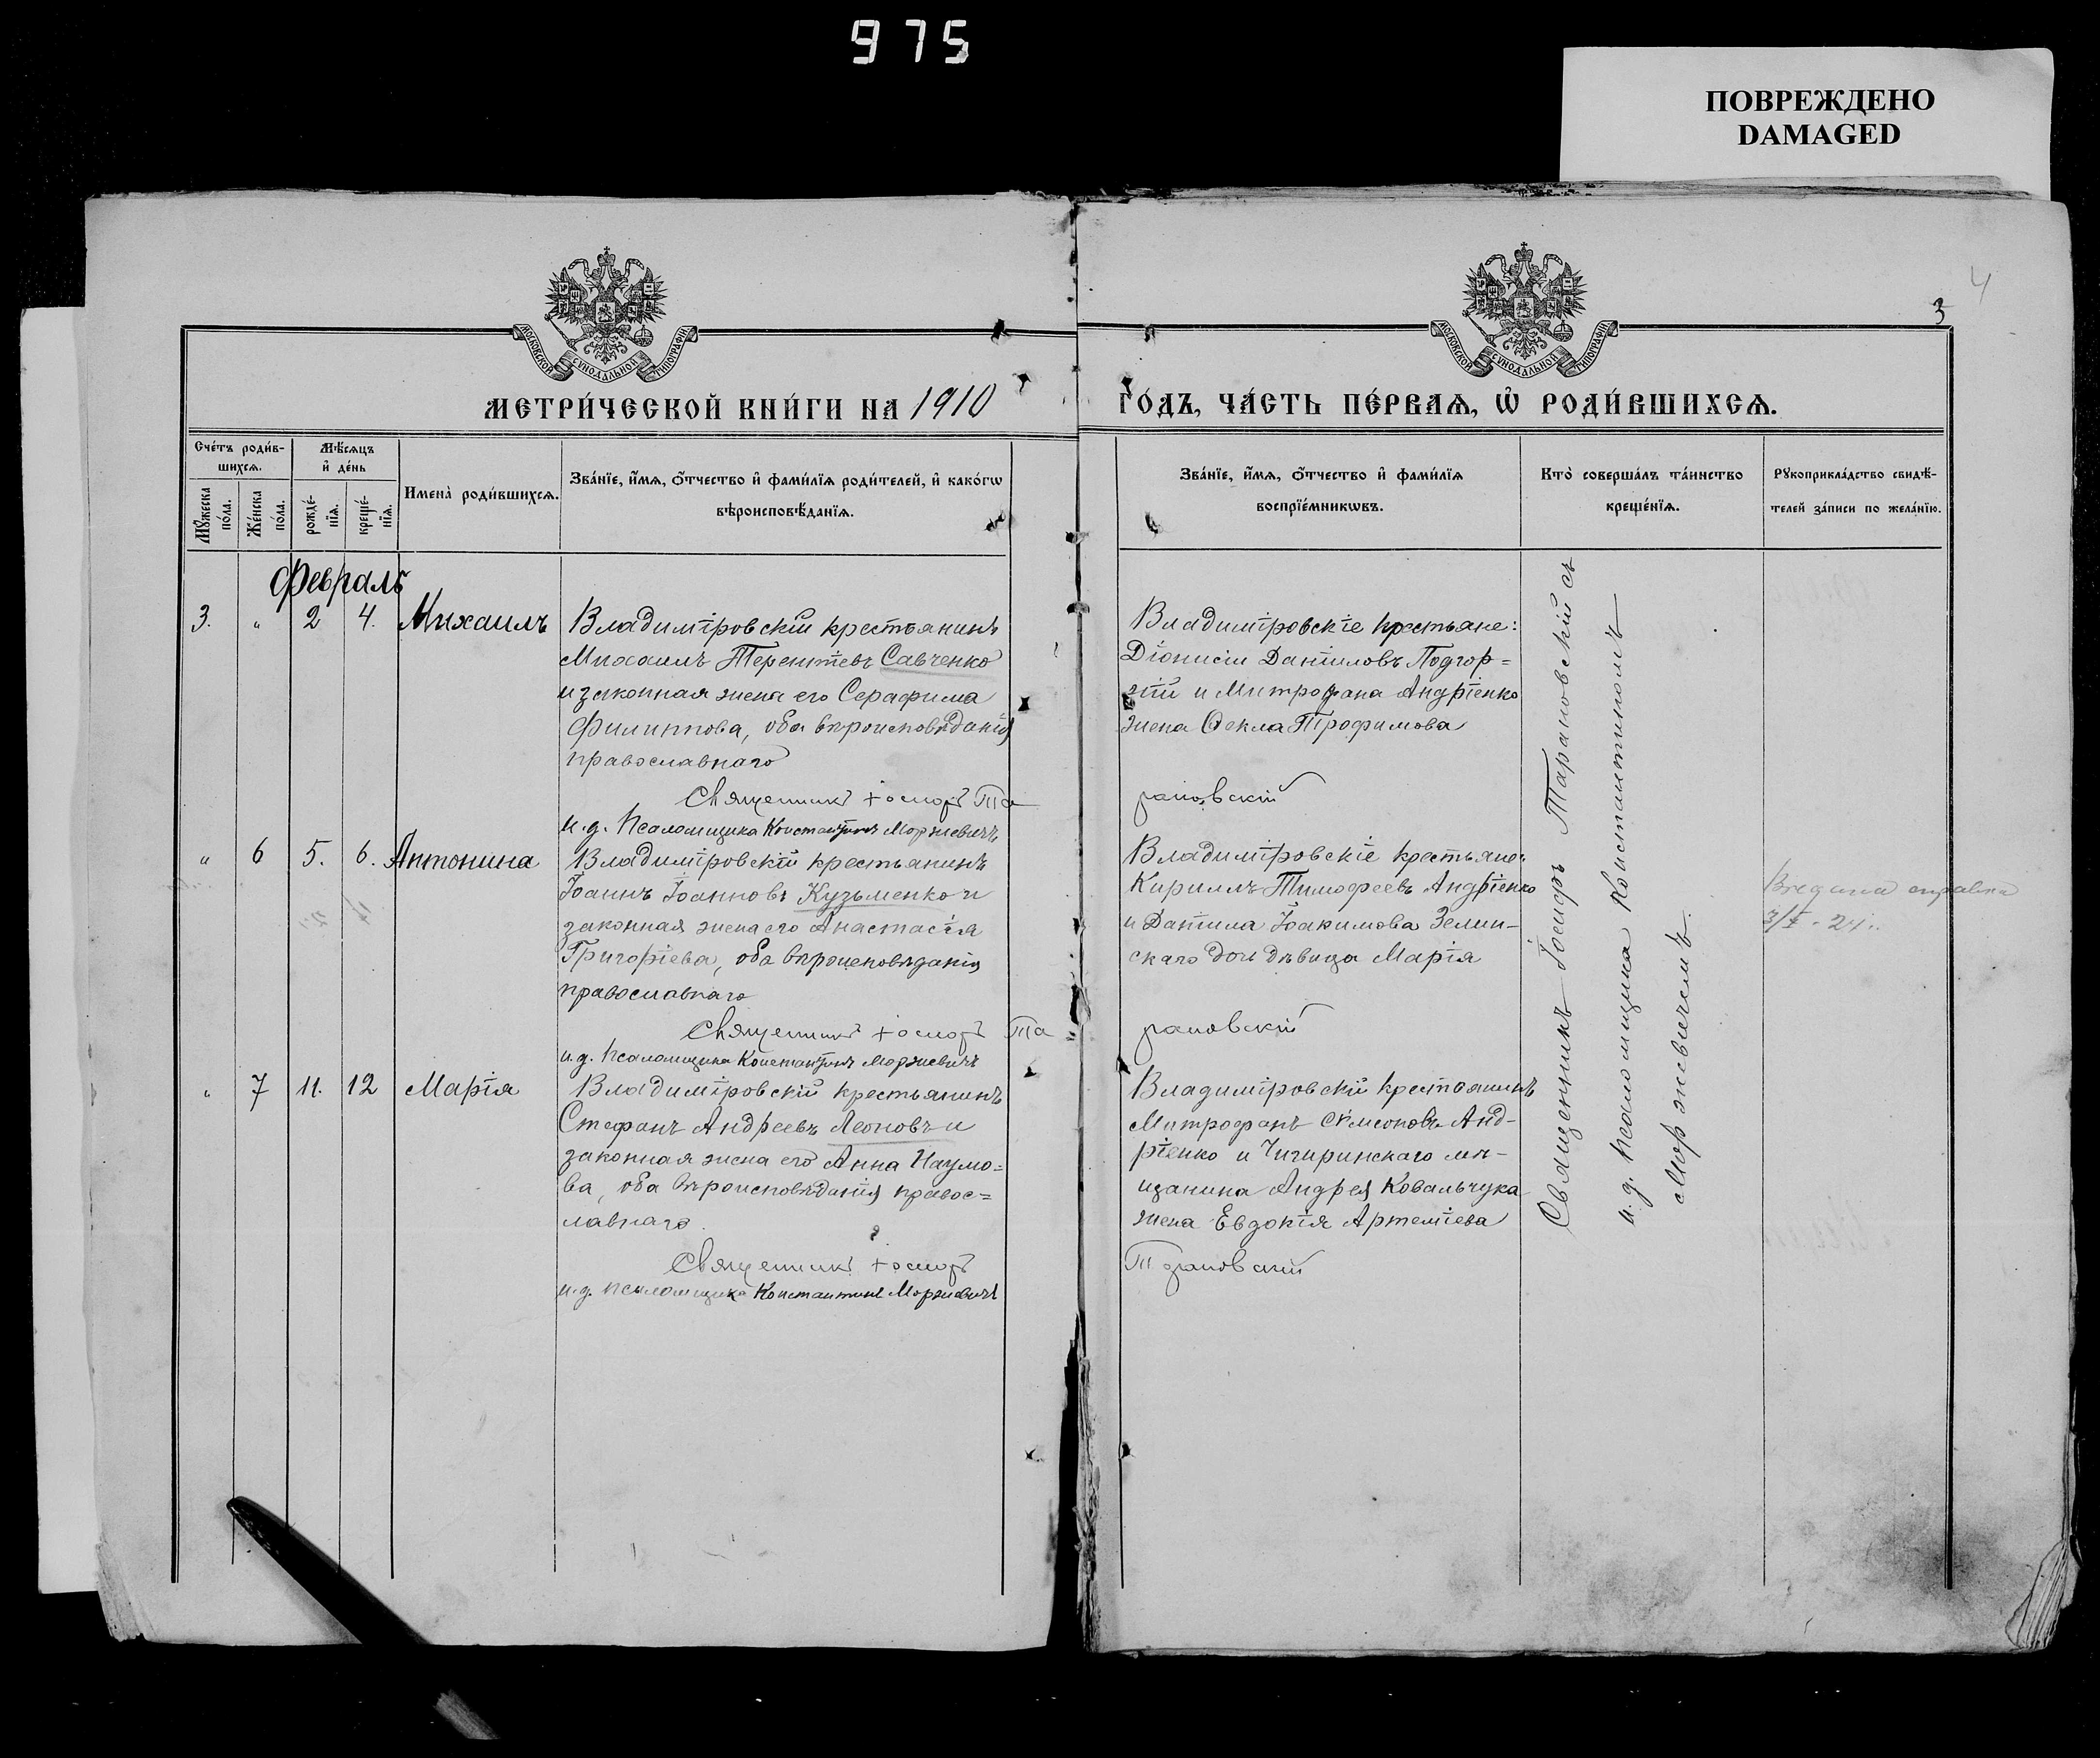 975
ПОВРЕЖДЕНО
DAMAGED
4
3
МОСКОВСКОЙ СУНОДАЛЬНОЙ ТИПОГРАФІИ
МОСКОВСКОЙ СУНОДАЛЬНОЙ ТИПОГРАФІИ
МЕТРИ́ЧЕСКОЙ КНИ́ГИ НА 1910
ГО́ДЪ, ЧА́СТЬ ПЕ́РВАѦ, Ѡ҆ РОДИ́ВШИХСѦ.
Сче́тъ роди́в-
шихсѧ.
Мꙋ́жеска
по́ла.
Же́нска
по́ла.
Мѣ́сѧцъ
и҆ де́нь
рожде́-
нїѧ.
креще́-
нїѧ.
Имена̀ роди́вшихсѧ.
Зва́нїе, и҆́мѧ, ѻ҆́тчество и҆ фами́лїѧ роди́телей, и҆ како́гѡ
вѣроисповѣ́данїѧ.
Зва́нїе, и҆́мѧ, ѻ҆́тчество и҆ фами́лїѧ
воспрїе́мникѡвъ.
Кто̀ соверша́лъ та́инство
креще́нїѧ.
Рꙋкоприкла́дство свидѣ́-
телей за́писи по жела́нїю.
Февраль
3. " 2 4. Михаилъ
Владиміровскій крестьянинъ
Михаилъ Терентіевъ Савченко
и законная жена его Серафима
Филиппова, оба вѣроисповѣданія
православнаго
Священникъ Іосифъ Та
и.д. Псаломщика Константинъ Моржевичъ
Владиміровскіе крестьяне:
Діонисій Даніиловъ Подгор=
ній и Митрофана Андріенко
жена Ѳекла Трофимова
рановскій
" 6 5. 6. Антонина
Владиміровскій крестьянинъ
Іоаннъ Іоанновъ Кузьменко и
законная жена его Анастасія
Григоріева, оба вѣроисповѣданія
православнаго
Священникъ Іосифъ Та
и.д. Псаломщика Константинъ Моржевичъ
Владиміровскіе крестьяне:
Кириллъ Тимофеевъ Андріенко
и Даніила Іоакимова Зелин-
скаго дочь дѣвица Марія
рановскій
справка
" 7 11. 12 Марія
Владиміровскій крестьянинъ
Стефанъ Андреевъ Леоновъ и
законная жена его Анна Наумо=
ва, оба вѣроисповѣданія правос=
лавнаго.
Священникъ Іосифъ
и.д. псаломщика Константинъ Моржевичъ
Владиміровскій крестьянинъ
Митрофанъ Симеоновъ Анд-
ріенко и Чигиринскаго мѣ-
щанина Андрея Ковальчука
жена Евдокія Артеміева
Тарановскій
Священникъ Іосифъ Тарановскій съ
и.д. псаломщика Константиномъ
Моржевичемъ.